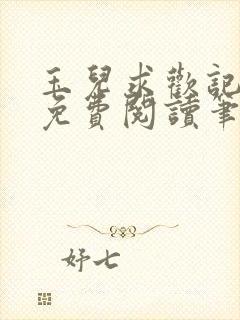 玉兒求歡記
免費閱讀筆
妤七